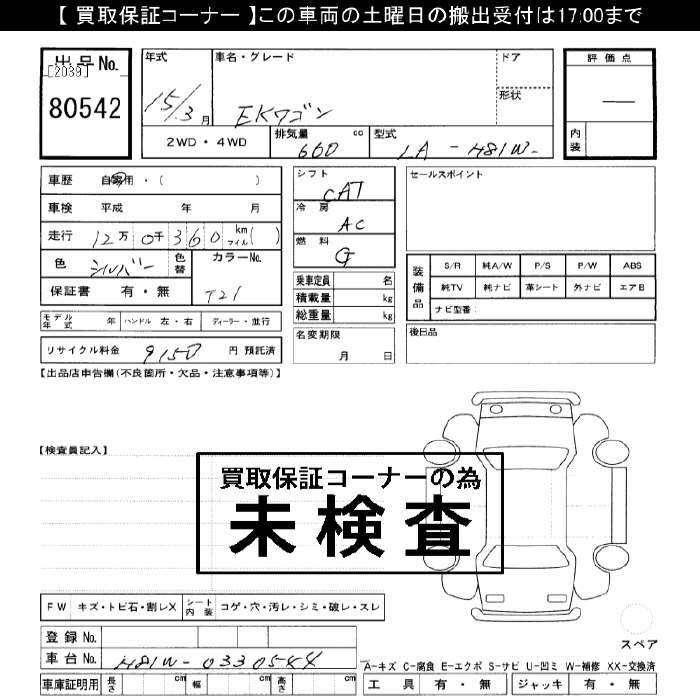 【 買取保証コーナー 】この車両の土曜日の搬出受付は17:00まで
出品No.
[2039]
80542
年式
15/3月
車名・グレード
EKワゴン
ドア
形状
評価点
―
内装
2WD・4WD
排気量 cc
660
型式
LA-H81W-
車歴 自家用・( )
車検 平成 年 月
走行 12万0千360 km マイル( )
色 シルバー 色替 カラーNo.
T21
保証書 有・無
モデル年式 年 ハンドル 左・右 ディーラー・並行
リサイクル料金 9150 円 預託済
シフト
CAT
冷房
AC
燃料
G
乗車定員 名
積載量 kg
総重量 kg
名変期限
月 日
セールスポイント
装備品
S/R 純A/W P/S P/W ABS
純TV 純ナビ 革シート 外ナビ エアB
ナビ型番:
後日品
【出品店申告欄(不良箇所・欠品・注意事項等)】
【検査員記入】
買取保証コーナーの為
未検査
FW キズ・トビ石・割レX シート内装 コゲ・穴・汚レ・シミ・破レ・スレ
登録No.
車台No. H81W-0330544
車庫証明用 長さ cm 幅 cm 高さ cm
スペア
A-キズ C-腐食 E-エクボ S-サビ U-凹ミ W-補修 XX-交換済
工具 有・無 ジャッキ 有・無